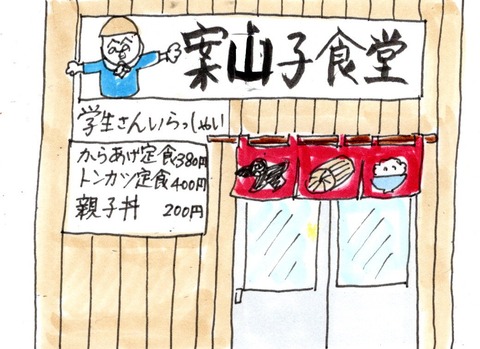 案山子食堂
学生さんいらっしゃい
からあげ定食380円
トンカツ定食400円
親子丼 200円